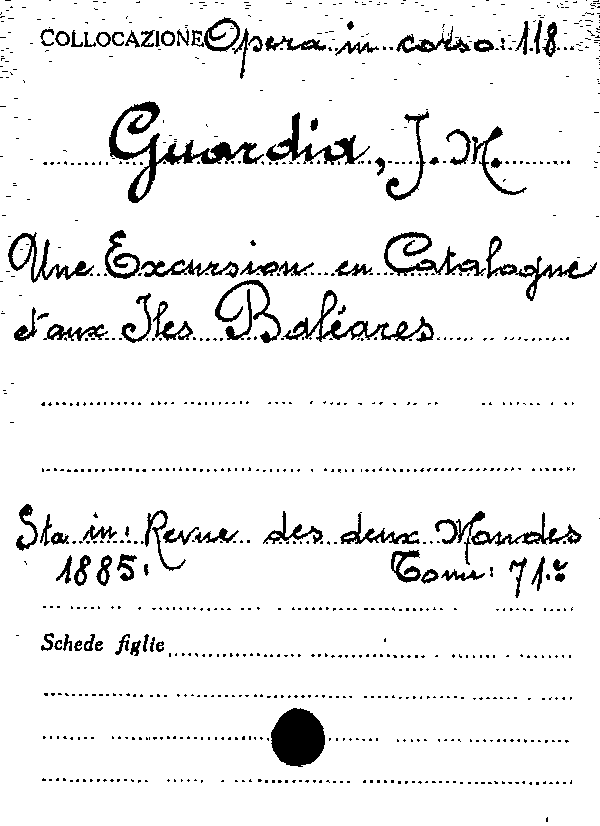 COLLOCAZIONE Opera in corso: 118
Guardia, J. M.
Une Excursion en Catalogne
et aux Iles Baléares
Sta in: Revue des deux Mondes
1885. Tome: 71.º
Schede figlie